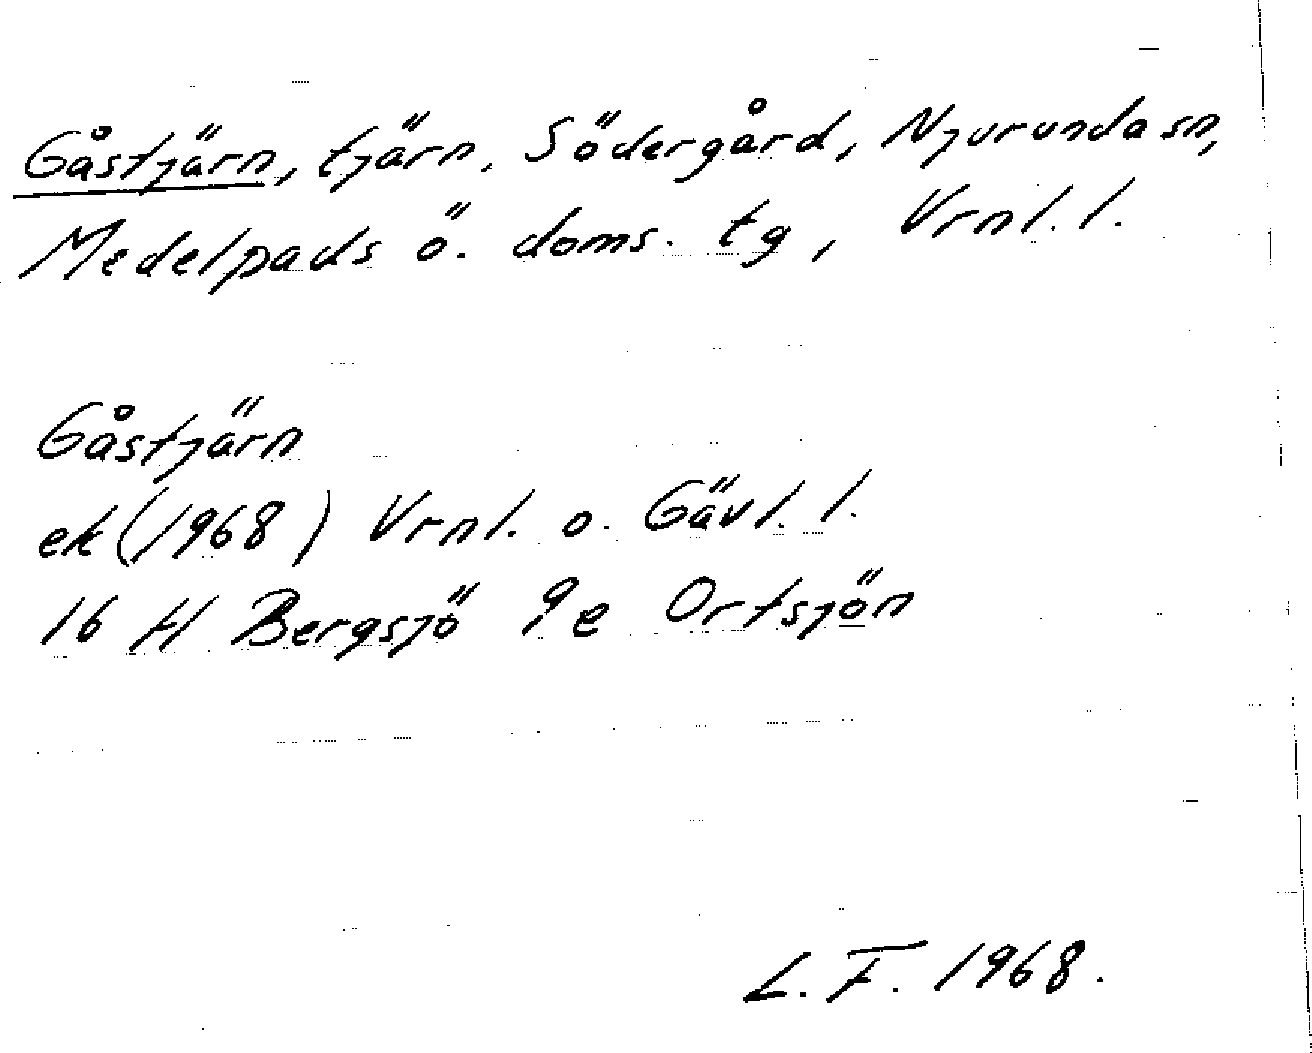 Gåstjärn, tjärn, Södergård, Njurunda sn,
Medelpads ö. doms. tg, Vrnl. l.
Gåstjärn
ek (1968) Vrnl. o. Gävl. l.
16 H Bergsjö 9e Ortsjön
L. F. 1968.